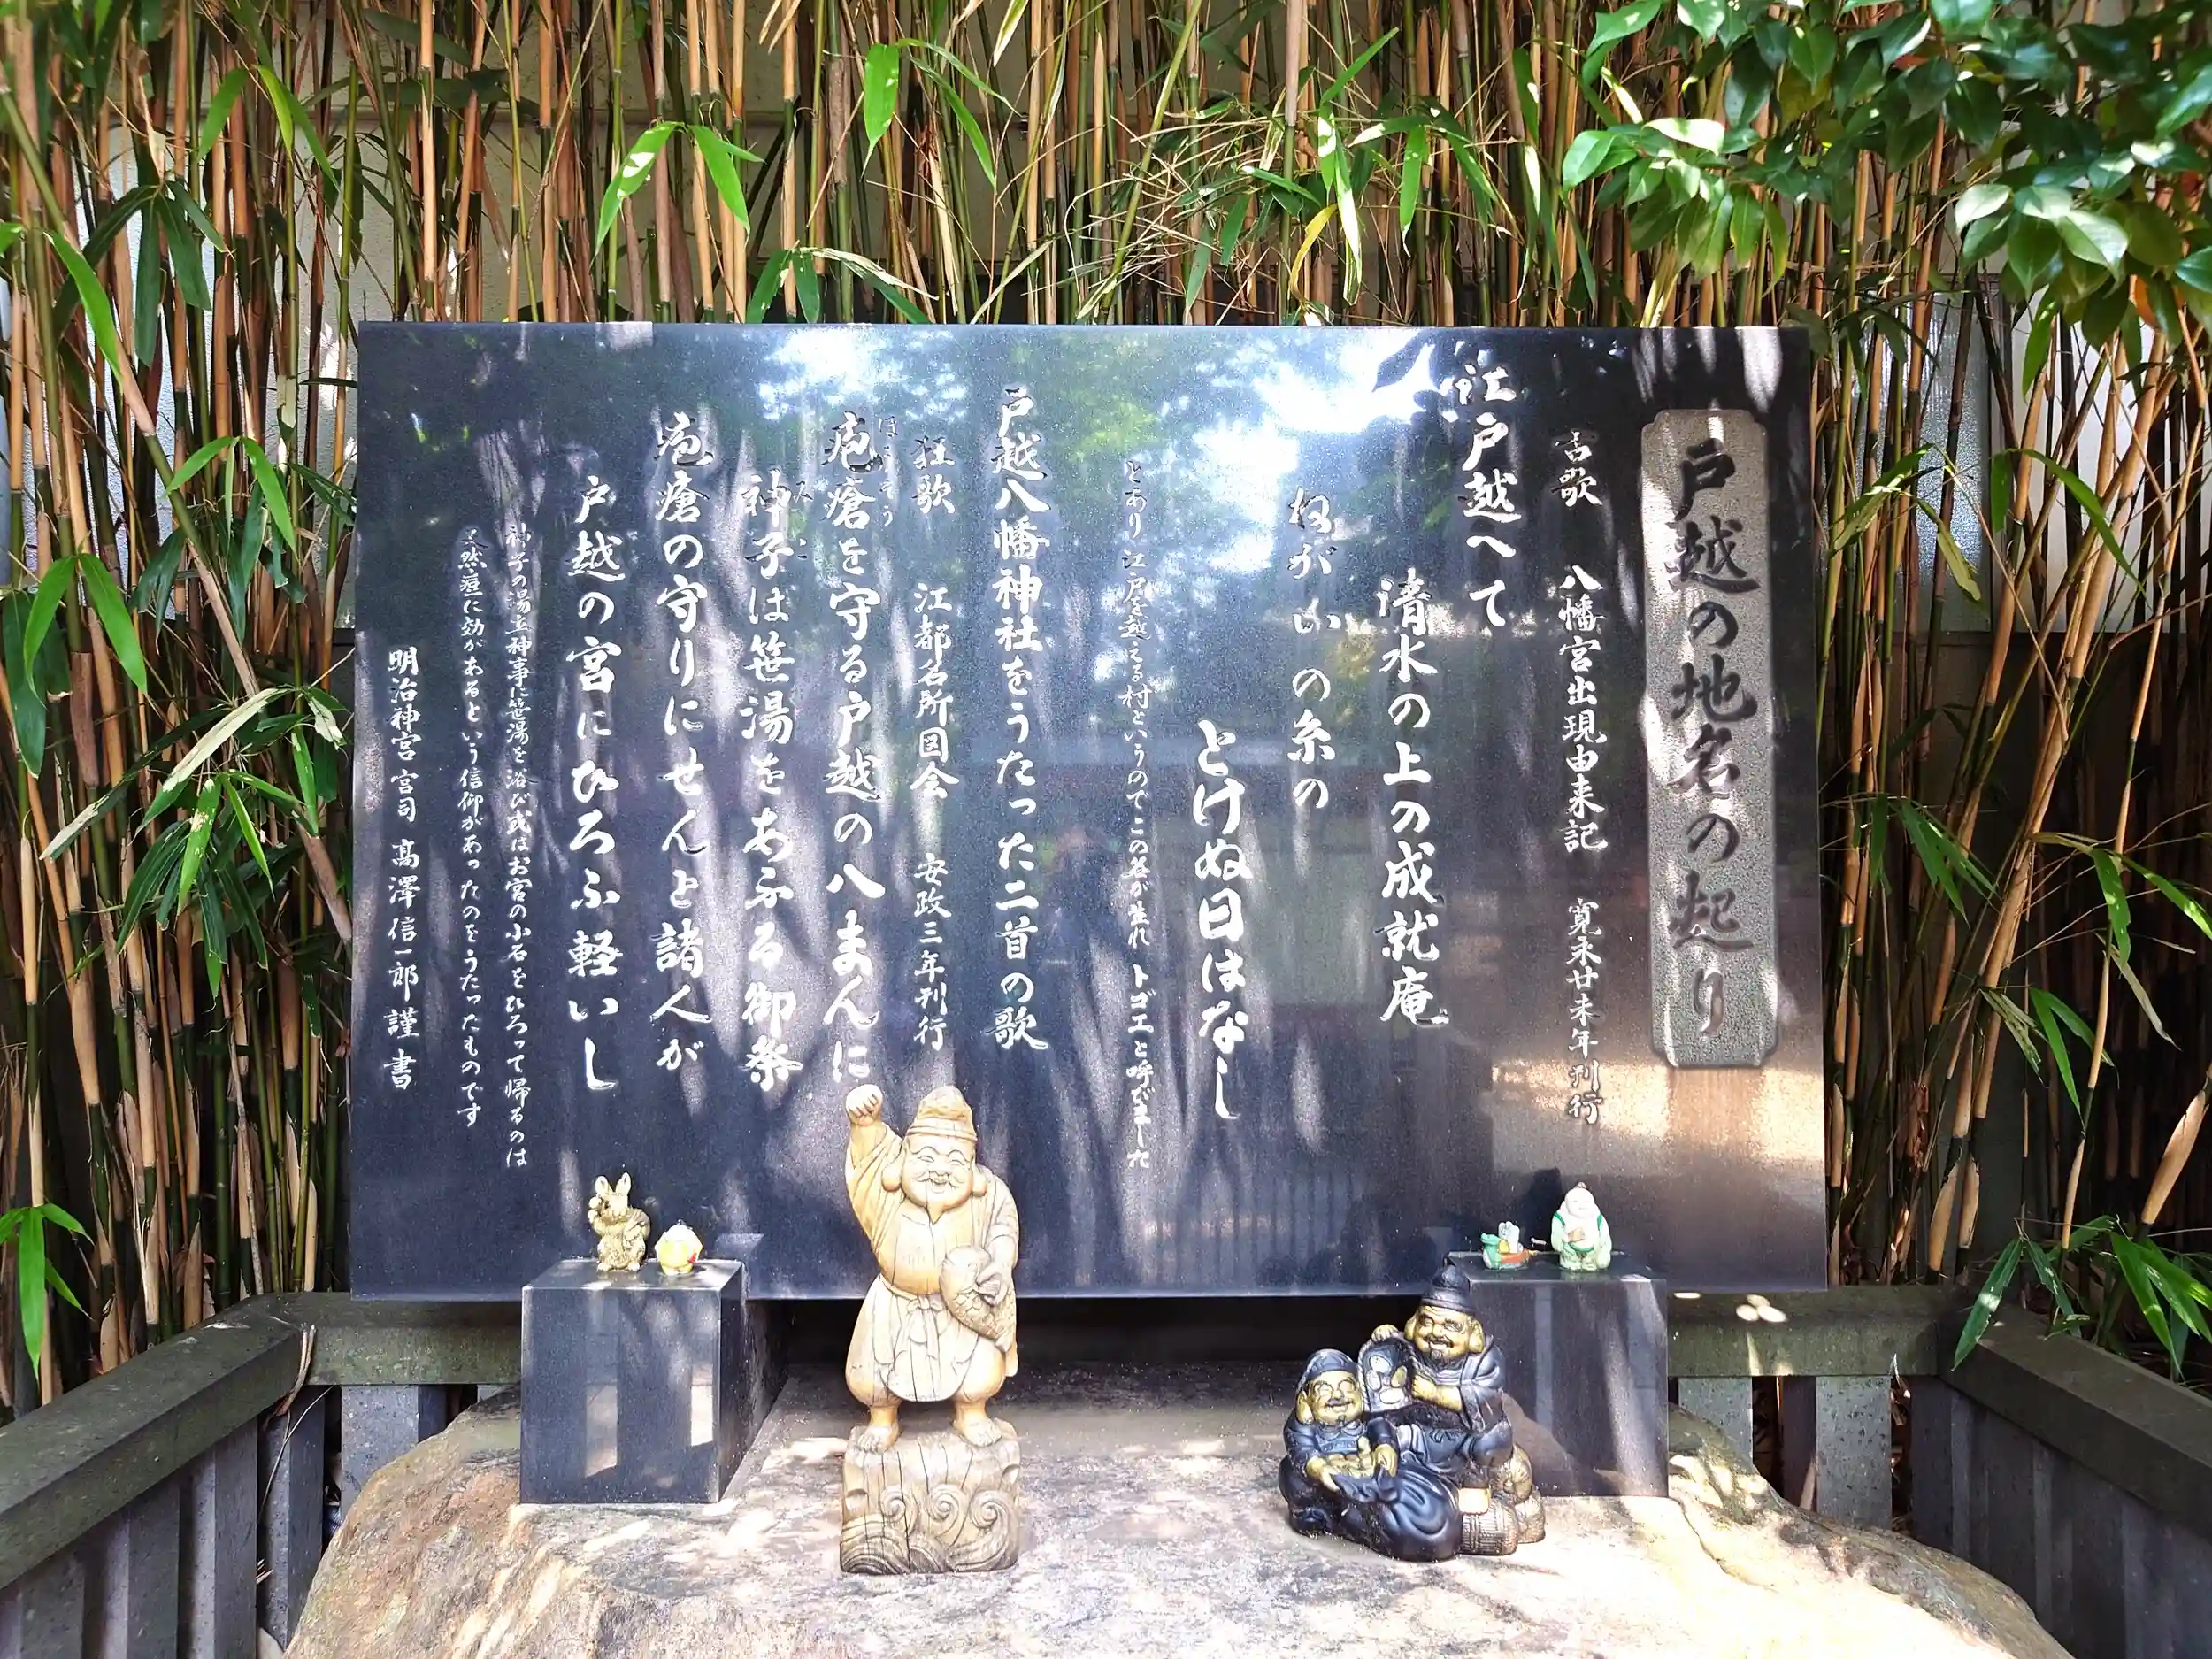 戸越の地名の起り
古歌 八幡宮出現由来記 寛永廿未年刊行
江戸越へて
清水の上の成就庵
ねがいの糸の
とけぬ日はなし
とあり 江戸を越える村というのでこの名が生れ トゴエと呼びました
戸越八幡神社をうたった二首の歌
狂歌 江都名所図会 安政三年刊行
疱瘡を守る戸越の八まんに
ほうそう
神子は笹湯をあふる御祭
みこ
疱瘡の守りにせんと諸人が
戸越の宮にひろふ軽いし
神子の湯立神事に笹湯を浴び或はお宮の小石をひろって帰るのは
天然痘に効があるという信仰があったのをうたったものです
明治神宮宮司 高澤信一郎 謹書